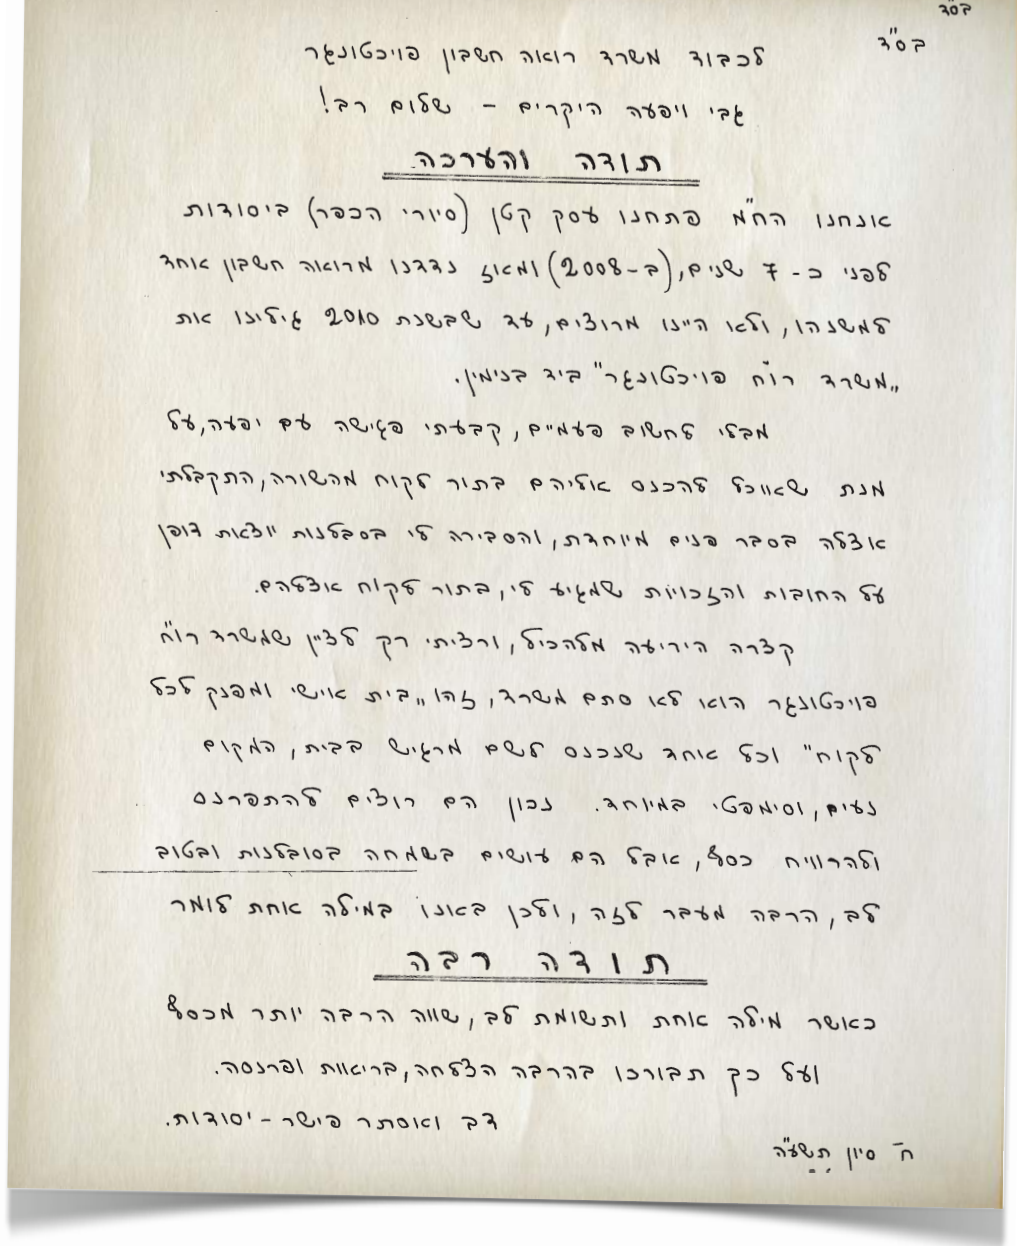 בס"ד
בס"ד
לכבוד משרד רואה חשבון פויכטונגר
גבי ויפעה היקרים – שלום רב!
תודה והערכה
אנחנו הח"מ פתחנו עסק קטן (סיורי הכפר) ביסודות
לפני כ- 7 שנים, (ב-2008) ומאז נדדנו מרואה חשבון אחד
למשנהו, ולא היינו מרוצים, עד שבשנת 2010 גילינו את
"משרד רו"ח פויכטונגר" ביד בנימין.
מבלי לחשוב פעמיים, קבעתי פגישה עם יפעה, על
מנת שאוכל להכנס אליהם בתור לקוח מהשורה, התקבלתי
אצלה בסבר פנים מיוחדת, והסבירה לי בסבלנות יוצאת דופן
על החובות והזכויות שמגיע לי, בתור לקוח אצלהם.
קצרה היריעה מלהכיל, ורציתי רק לציין שמשרד רו"ח
פויכטונגר הוא לא סתם משרד, זהו "בית אישי ומפנק לכל
לקוח" וכל אחד שנכנס לשם מרגיש בבית, המקום
נעים, וסימפטי במיוחד. נכון הם רוצים להתפרנס
ולהרוויח כסף, אבל הם עושים בשמחה בסובלנות ובטוב
לב, הרבה מעבר לזה, ולכן באנו במילה אחת לומר
תודה רבה
כאשר מילה אחת ותשומת לב, שווה הרבה יותר מכסף
ועל כך תבורכו בהרבה הצלחה, בריאות ופרנסה.
דב ואסתר פישר - יסודות.
ח' סיון תשע"ה